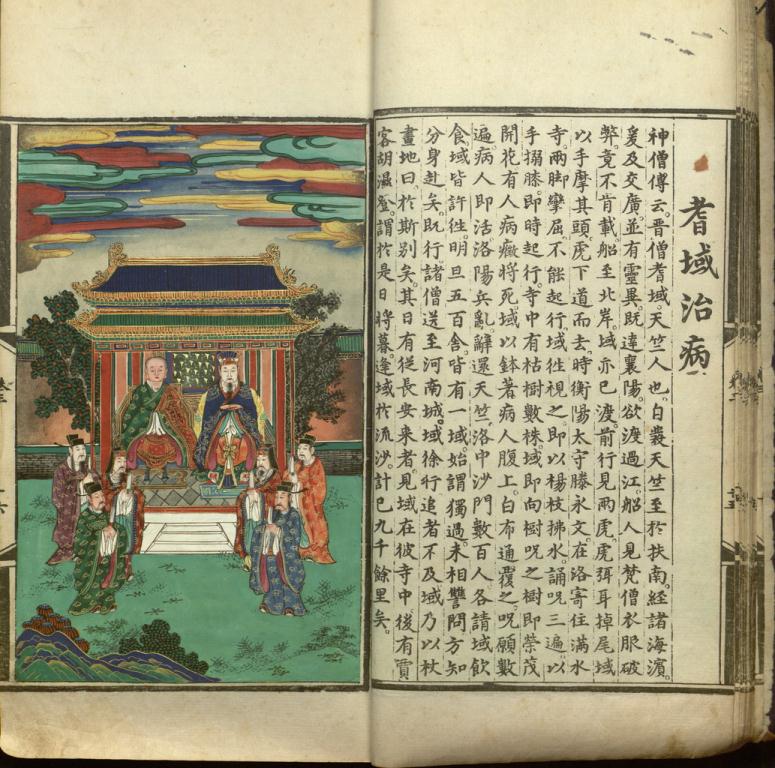 耆域治病
神僧傳云。晋僧耆域。天竺人也。自發天竺至於扶南。經諸海濱。
爰及交廣。並有靈異。既達襄陽。欲渡過江。船人見梵僧衣服破
弊。竟不肯載。船至北岸。域亦已渡。前行見兩虎。虎弭耳掉尾。域
以手摩其頭。虎下道而去。時衡陽太守滕永文。在洛寄住滿水
寺。兩脚攣屈。不能起行。域徃視之。即以楊枝拂水。誦呪三遍。以
手搦膝。即時起行。寺中有枯樹數株。域即向樹呪之。樹即榮茂
開花。有人病癥將死。域以鉢著病人腹上。白布通覆之。呪願數
遍。病人即活。洛陽兵亂。辭還天竺。洛中沙門數百人。各請域飲
食。域皆許徃。明旦五百舍。皆有一域。始謂獨過。末相讐問。方知
分身赴矣。既行。諸僧送至河南城。域徐行。追者不及。域乃以杖
畫地曰。於斯別矣。其日有從長安来者。見域在彼寺中。後有賈
客胡濕登。謂於是日將暮。逢域於流沙。計已九千餘里矣。